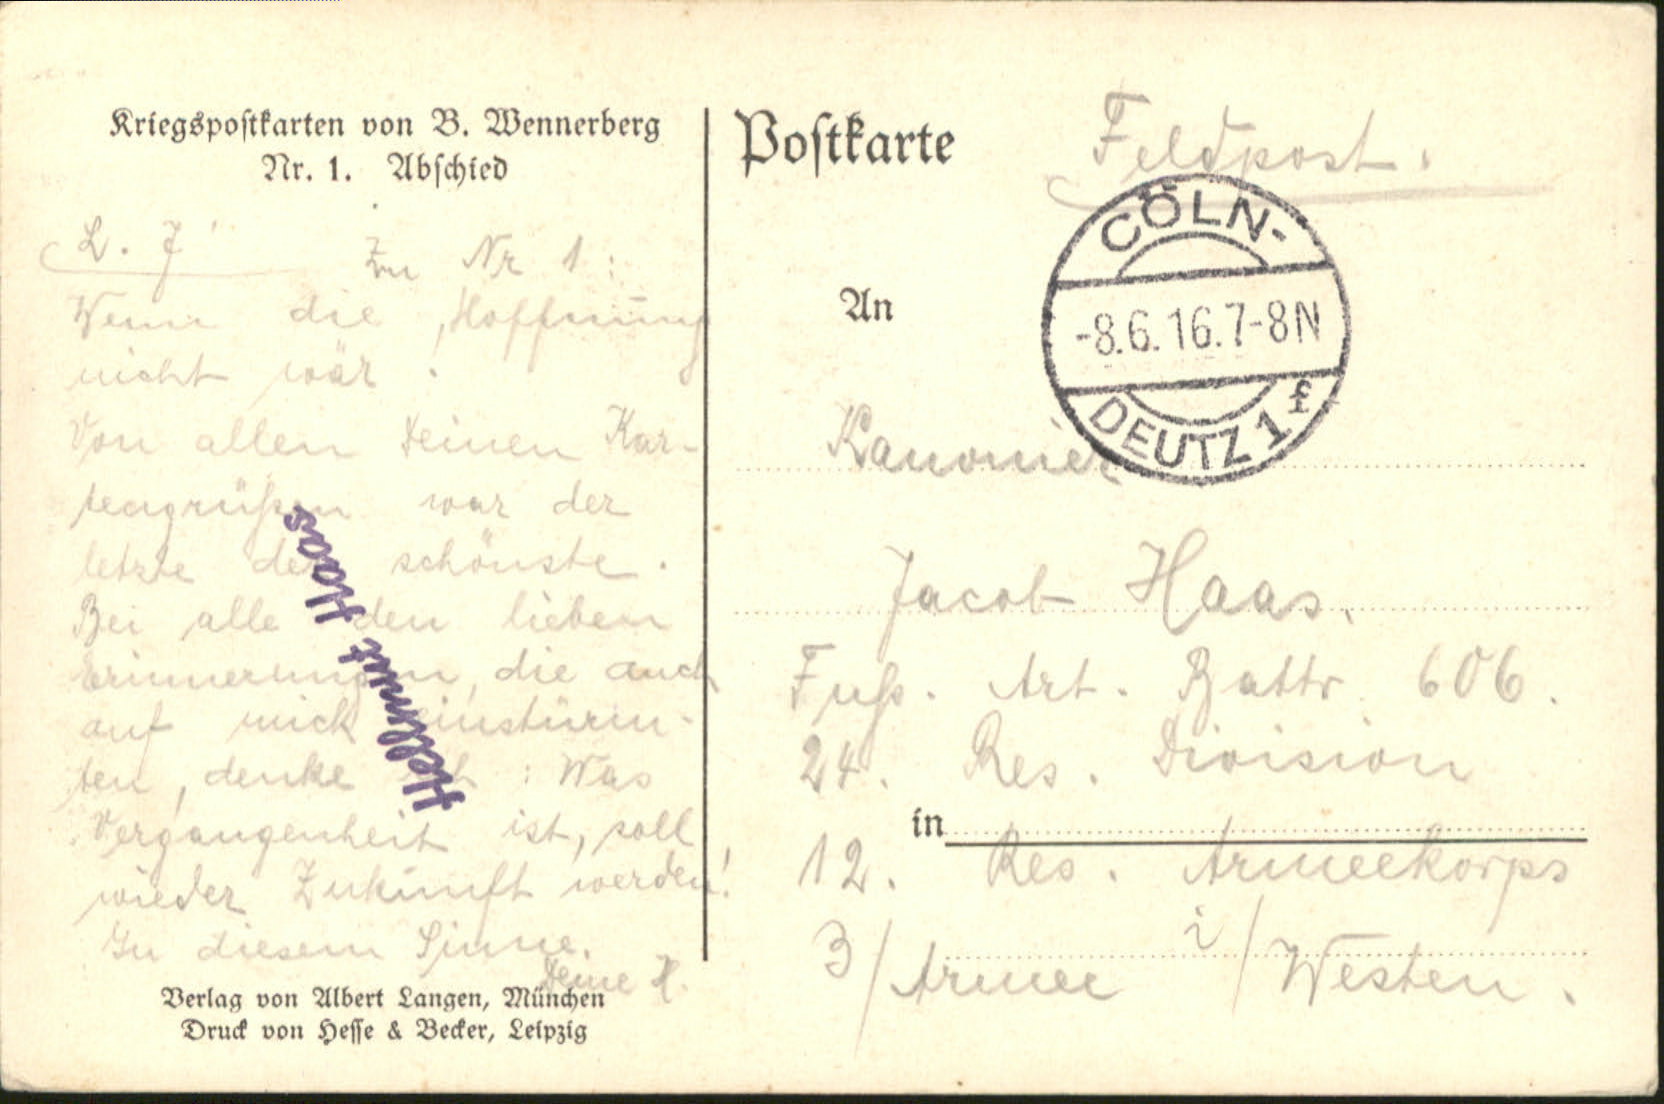 Kriegspostkarten von B. Wennerberg
Nr. 1. Abschied
L. J
Zu Nr 1:
Wenn die Hoffnung
nicht wär.
Von allen Deinen Kar-
tengrüßen war der
letzte der schönste.
Bei alle den lieben
Erinnerungen, die auch
auf mich einstürm-
ten, denke ich: Was
Vergangenheit ist, soll
wieder Zukunft werden!
In diesem Sinne.
Deine H.
Hellmut Haas
Verlag von Albert Langen, München
Druck von Hesse & Becker, Leipzig
Postkarte
Feldpost.
CÖLN-
-8.6.16.7-8N
DEUTZ 1 f
An
Kanonier
Jacob Haas.
Fuß. Art. Battr. 606.
24. Res. Division
in
12. Res. Armeekorps
3/Armee i/Westen.